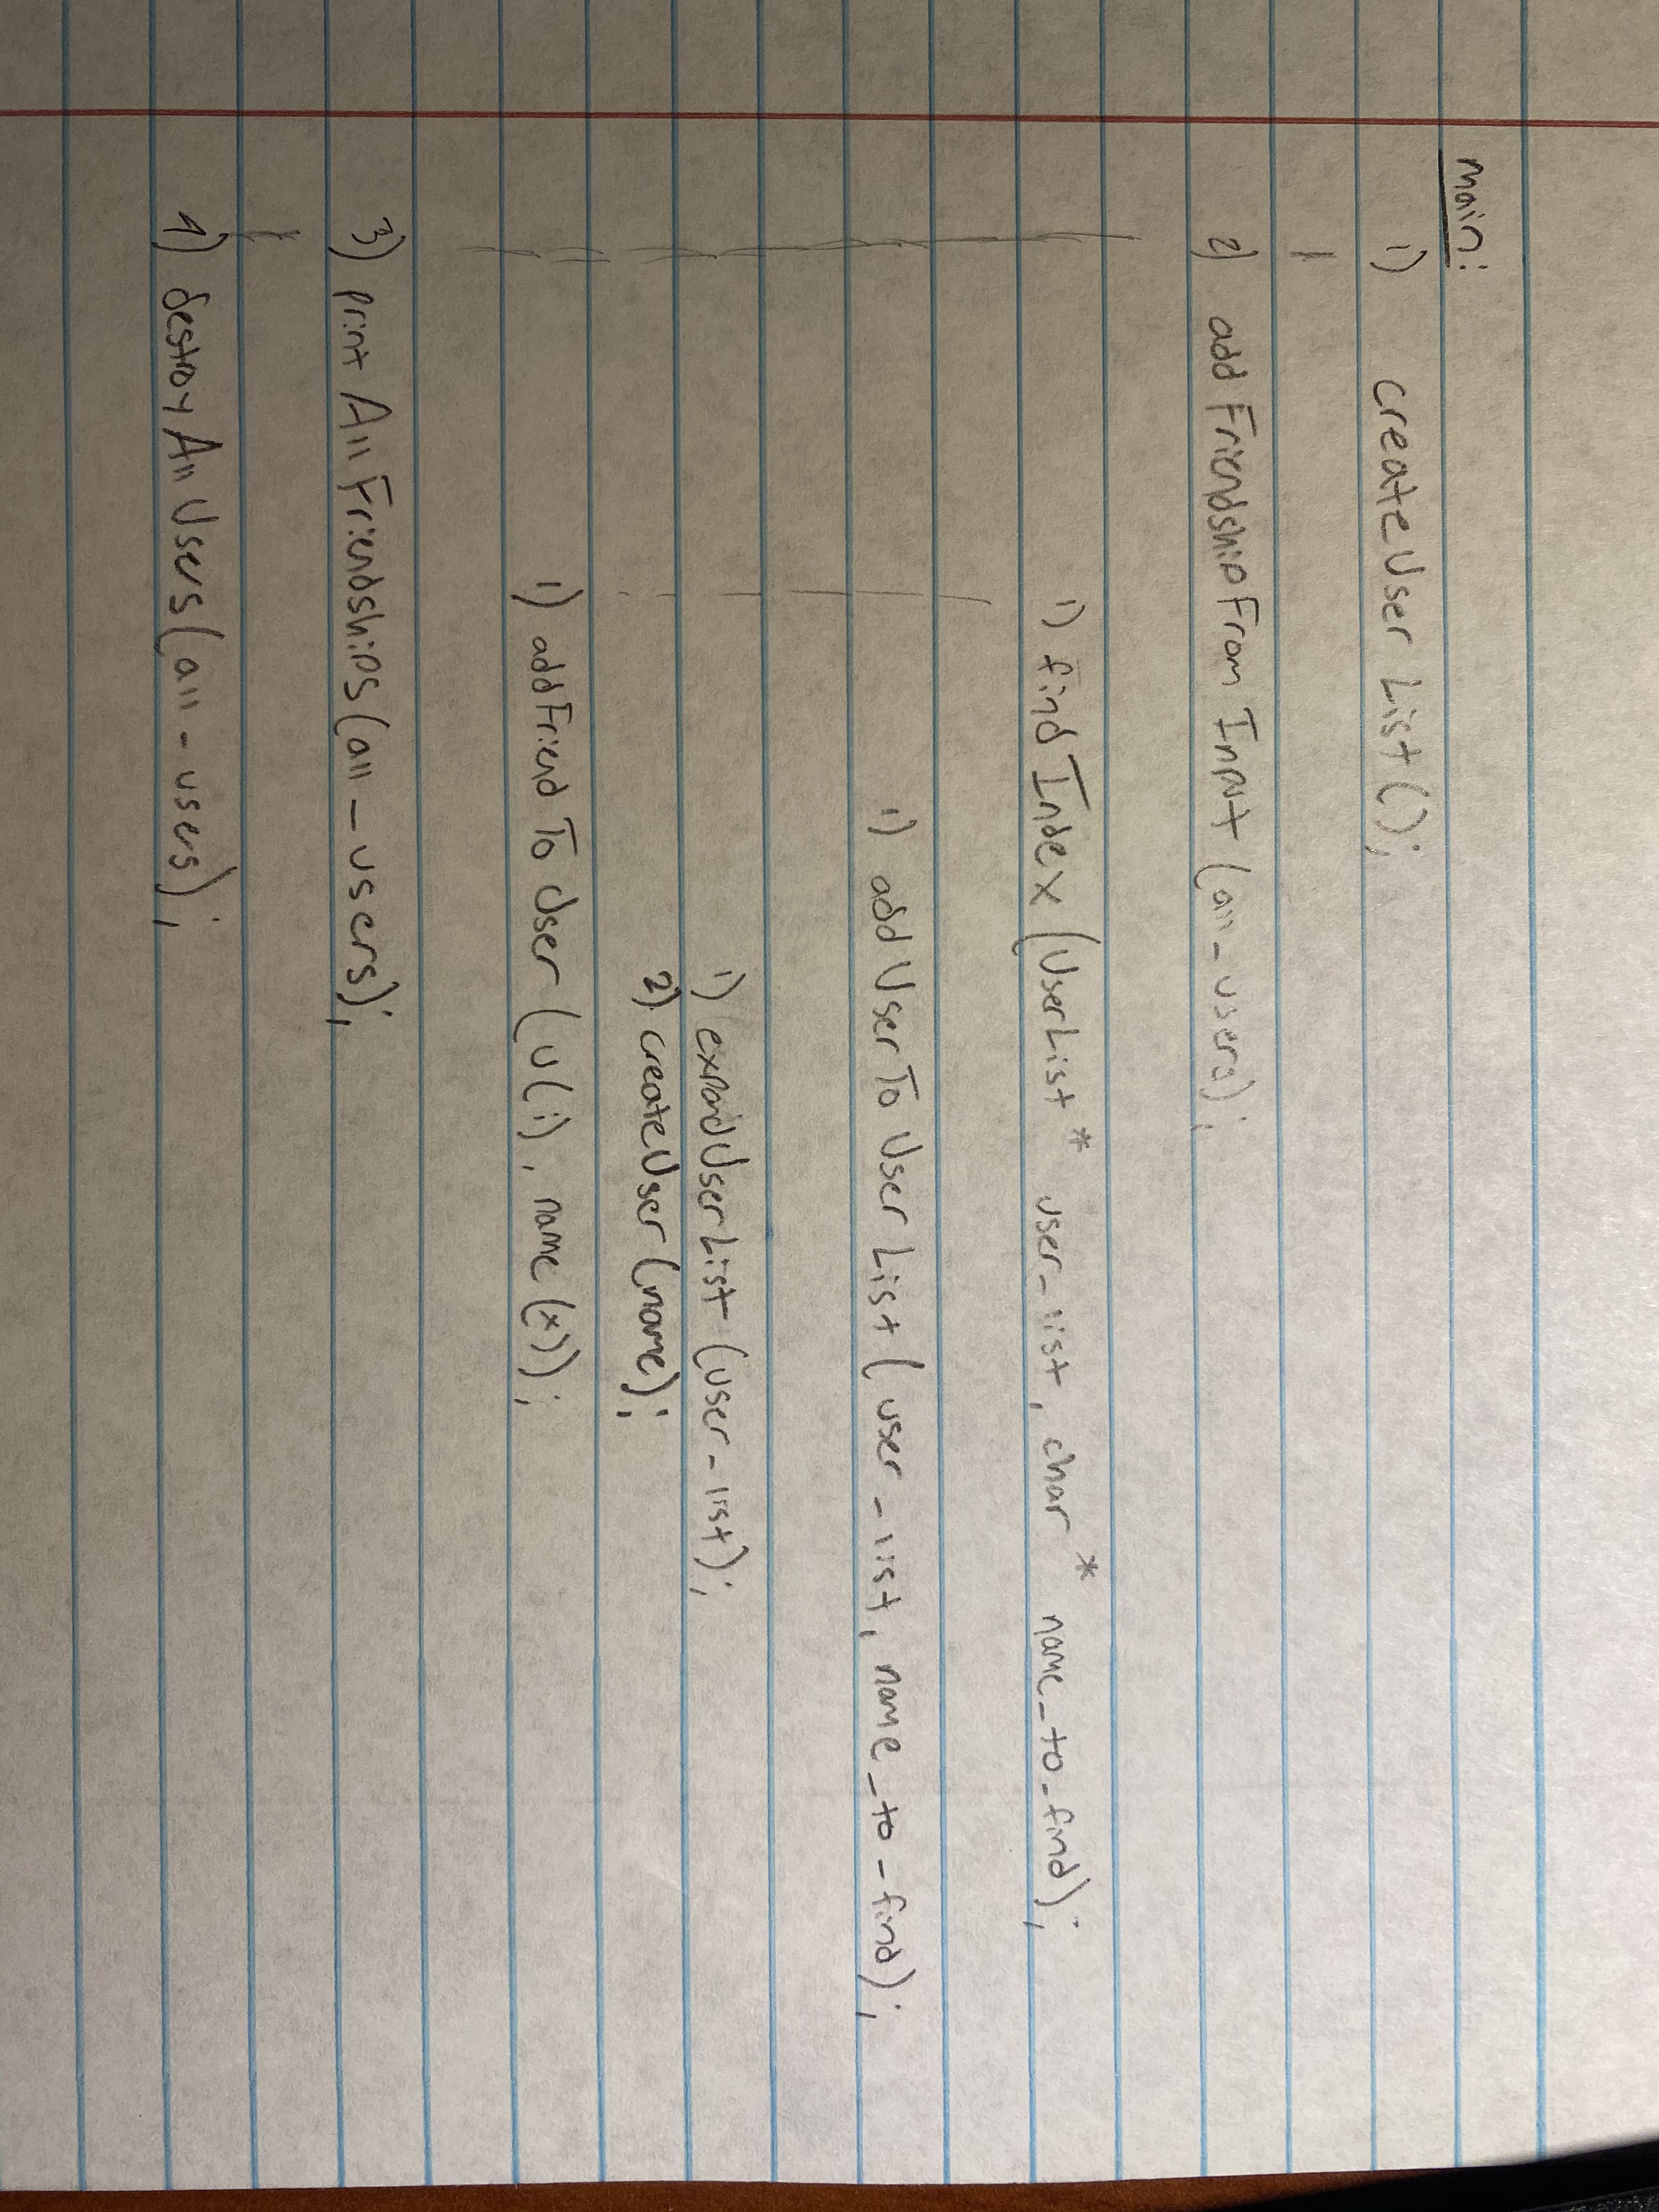 main:
1) createUser List();
2) add FriendshipFrom Input (all_users);
1) find Index (UserList * user_list, char * name_to_find);
1) add User To User List ( user_list, name_to_find);
1) expandUserList (user_list);
2) createUser (name);
1) addFriend To User (u(i), name (x));
3) print All Friendships (all_users);
4) destroy All Users (all_users);